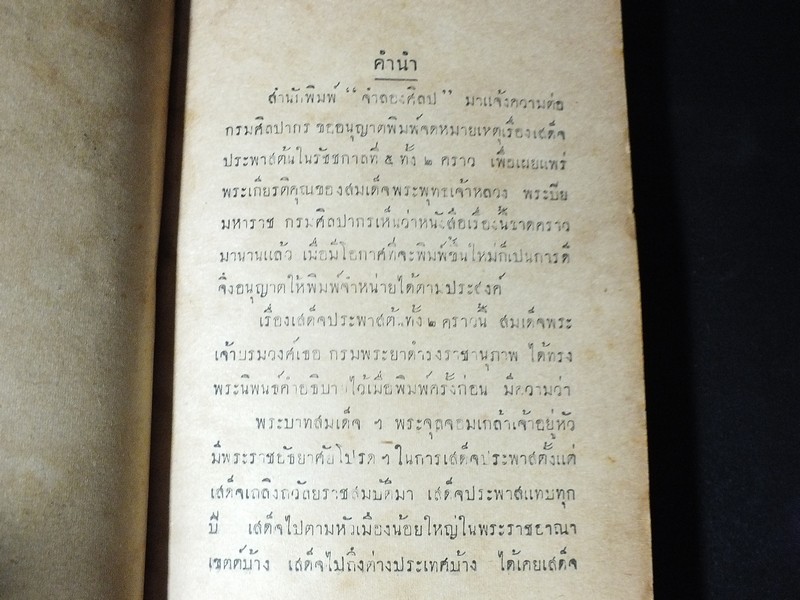 คำนำ
สำนักพิมพ์ “จำลองศิลป” มาแจ้งความต่อ
กรมศิลปากร ขออนุญาตพิมพ์จดหมายเหตุเรื่องเสด็จ
ประพาสต้นในรัชชกาลที่ ๕ ทั้ง ๒ คราว เพื่อเผยแพร่
พระเกียรติคุณของสมเด็จพระพุทธเจ้าหลวง พระปิย
มหาราช กรมศิลปากรเห็นว่าหนังสือเรื่องนี้ขาดคราว
มานานแล้ว เมื่อมีโอกาศที่จะพิมพ์ขึ้นใหม่ก็เป็นการดี
จึงอนุญาตให้พิมพ์จำหน่ายได้ตามประสงค์
เรื่องเสด็จประพาสต้นทั้ง ๒ คราวนี้ สมเด็จพระ
เจ้าบรมวงศ์เธอ กรมพระยาดำรงราชานุภาพ ได้ทรง
พระนิพนธ์คำอธิบายไว้เมื่อพิมพ์ครั้งก่อน มีความว่า
พระบาทสมเด็จ ฯ พระจุลจอมเกล้าเจ้าอยู่หัว
มีพระราชอัธยาศัยโปรด ฯ ในการเสด็จประพาสตั้งแต่
เสด็จเถลิงถวัลยราชสมบัติมา เสด็จประพาสแทบทุก
ปี เสด็จไปตามหัวเมืองน้อยใหญ่ในพระราชอาณา
เขตต์บ้าง เสด็จไปถึงต่างประเทศบ้าง ได้เคยเสด็จ